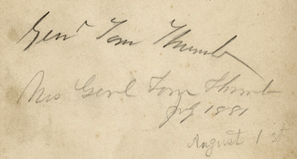 Genl Tom Thumb
Mrs Genl Tom Thumb
1881
August 1st